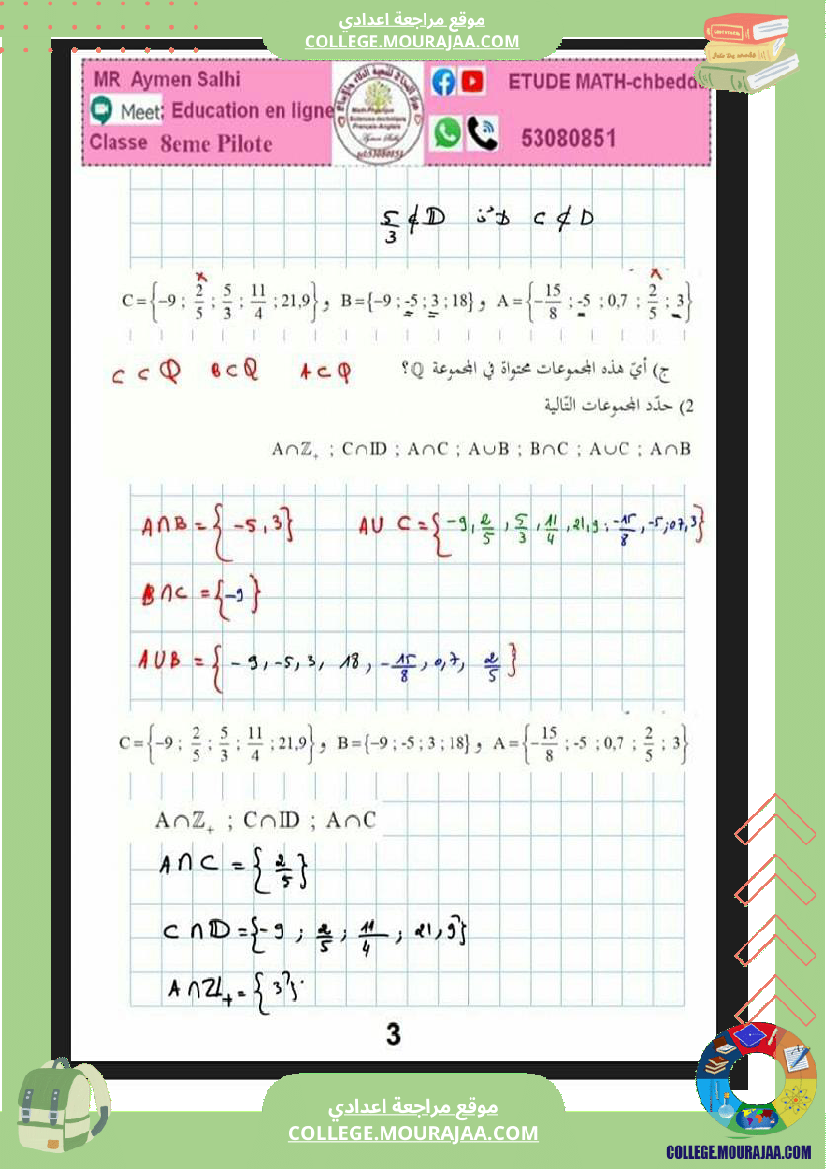 موقع مراجعة اعدادي
COLLEGE.MOURAJAA.COM
MR Aymen Salhi
Meet: Education en ligne
Classe 8eme Pilote
ETUDE MATH-chbedda
53080851
5/3 ∉ ID إذن C ⊄ D
C = {−9 ; 2/5 ; 5/3 ; 11/4 ; 21,9} , B = {−9 ; -5 ; 3 ; 18} , A = {−15/8 ; -5 ; 0,7 ; 2/5 ; 3}
ج) أيّ هذه المجموعات محتواة في المجموعة Q؟ A ⊂ Q B ⊂ Q C ⊂ Q
2) حدّد المجموعات التّالية
A∩ℤ₊ ; C∩ID ; A∩C ; A∪B ; B∩C ; A∪C ; A∩B
A∩B = {-5 , 3} A∪C = {-9 , 2/5 , 5/3 , 11/4 , 21,9 ; -15/8 , -5 ; 0,7 , 3}
B∩C = {-9}
A∪B = {-9 , -5 , 3 , 18 , -15/8 , 0,7 , 2/5}
C = {−9 ; 2/5 ; 5/3 ; 11/4 ; 21,9} , B = {−9 ; -5 ; 3 ; 18} , A = {−15/8 ; -5 ; 0,7 ; 2/5 ; 3}
A∩ℤ₊ ; C∩ID ; A∩C
A∩C = {2/5}
C∩ID = {-9 ; 2/5 ; 11/4 ; 21,9}
A∩ℤ₊ = {3}
3
موقع مراجعة اعدادي
COLLEGE.MOURAJAA.COM
COLLEGE.MOURAJAA.COM